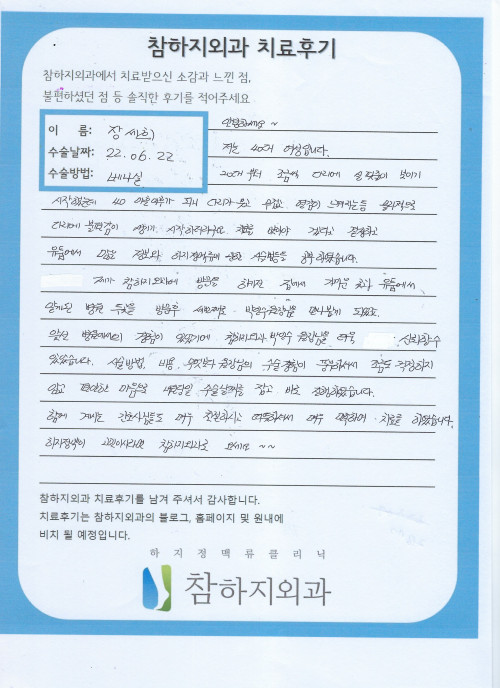 참하지외과 치료후기
참하지외과에서 치료받으신 소감과 느낀 점,
불편하셨던 점 등 솔직한 후기를 적어주세요
이 름: 장세희
수술날짜: 22.06.22
수술방법: 베나실
안녕하세요~
저는 40대 여성입니다.
20대 부터 조금씩 다리에 실핏줄이 보이기
시작했는데 40 이 되니 다리가 붓고 무겁고
다리에 불편감이 생기기 시작하더라구요
유튜브에서 많은 정보와 하지정맥류에 관한 시술방법들을 공부하였습니다.
제가 참하지외과에 방문을 하기전 집에서 가까운 곳과 유튜브에서
알게된 병원 두곳을 방문후 세번째로 박인수원장님을 만나뵙게 되었죠.
앞선 병원에서의 경험이 있었기에 참하지외과 박인수 원장님을 더욱 신뢰할수
있었습니다. 시술방법, 비용, 무엇보다 원장님의 수술경험이 풍부하셔서 조금도 걱정하지
않고 편안한 마음으로 수술날짜를 잡고 바로 진행하였습니다.
함께 계시는 간호사님들도 매우 친절하시고 따뜻하셔서 매우 만족하며 치료를 하였습니다.
하지정맥이 고민이시라면 참하지외과로 오세요~~
참하지외과 치료후기를 남겨 주셔서 감사합니다.
치료후기는 참하지외과의 블로그, 홈페이지 및 원내에
비치 될 예정입니다.
하지정맥류클리닉
참하지외과